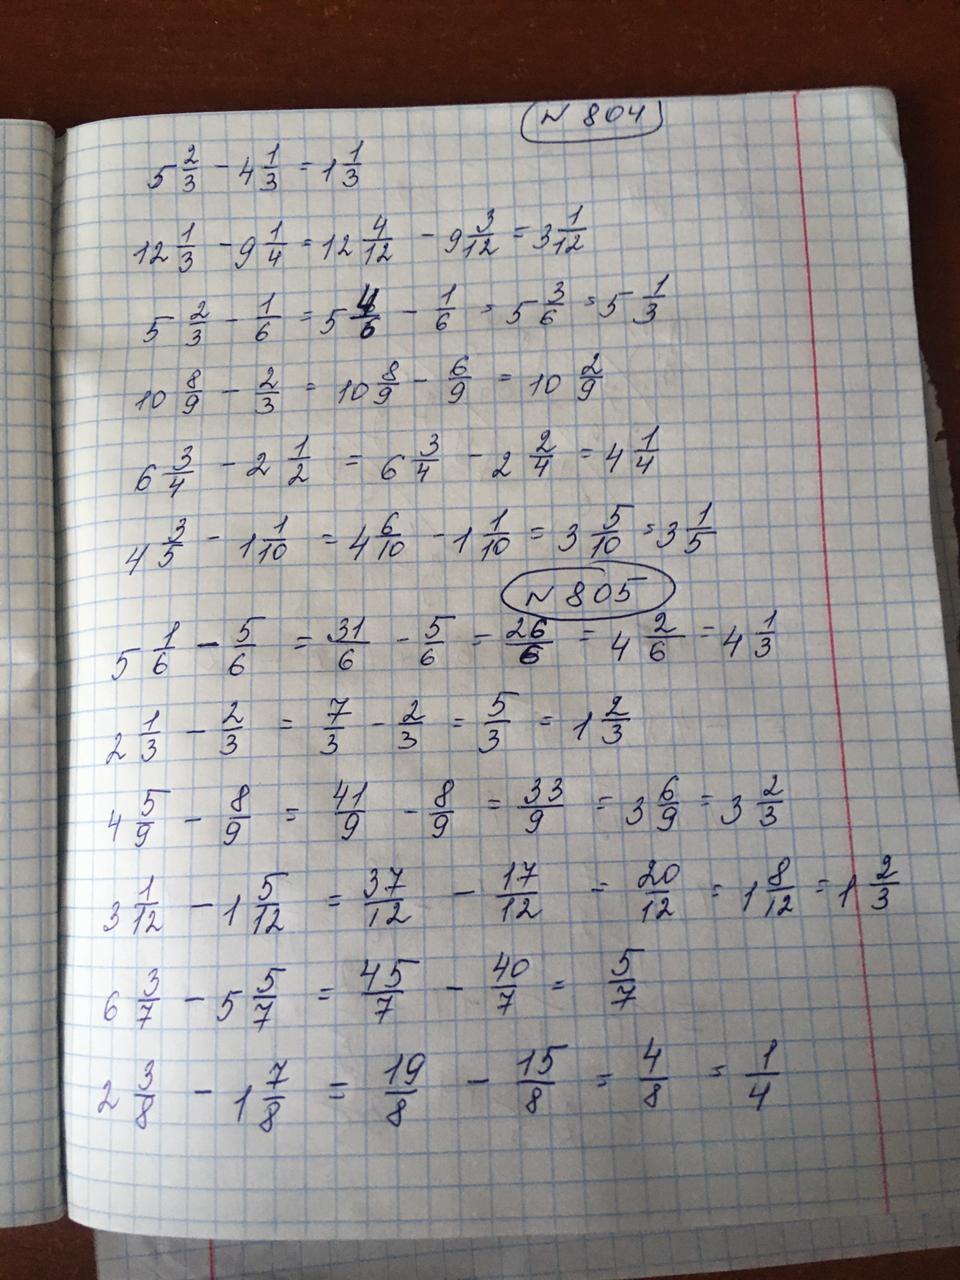 № 804
5 2/3 - 4 1/3 = 1 1/3
12 1/3 - 9 1/4 = 12 4/12 - 9 3/12 = 3 1/12
5 2/3 - 1/6 = 5 4/6 - 1/6 = 5 3/6 = 5 1/3
10 8/9 - 2/3 = 10 8/9 - 6/9 = 10 2/9
6 3/4 - 2 1/2 = 6 3/4 - 2 2/4 = 4 1/4
4 3/5 - 1 1/10 = 4 6/10 - 1 1/10 = 3 5/10 = 3 1/5
№ 805
5 1/6 - 5/6 = 31/6 - 5/6 = 26/6 = 4 2/6 = 4 1/3
2 1/3 - 2/3 = 7/3 - 2/3 = 5/3 = 1 2/3
4 5/9 - 8/9 = 41/9 - 8/9 = 33/9 = 3 6/9 = 3 2/3
3 1/12 - 1 5/12 = 37/12 - 17/12 = 20/12 = 1 8/12 = 1 2/3
6 3/7 - 5 5/7 = 45/7 - 40/7 = 5/7
2 3/8 - 1 7/8 = 19/8 - 15/8 = 4/8 = 1/4